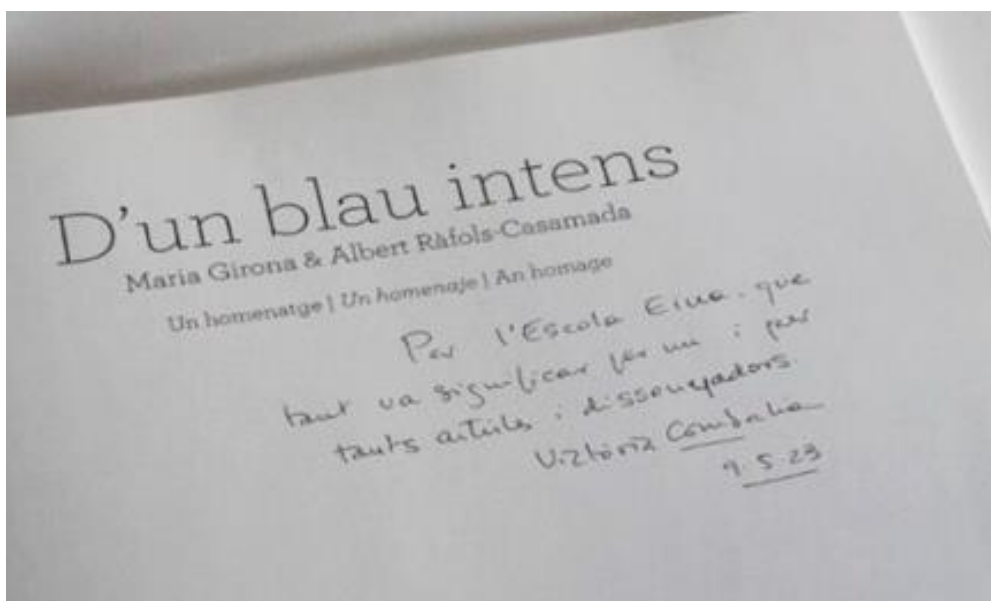 D'un blau intens
Maria Girona & Albert Ràfols-Casamada
Un homenatge | Un homenaje | An homage
Per l'Escola Eina, que
tant va significar per mi i per
tants artistes i dissenyadors.
Victòria Combalia
9.5.23